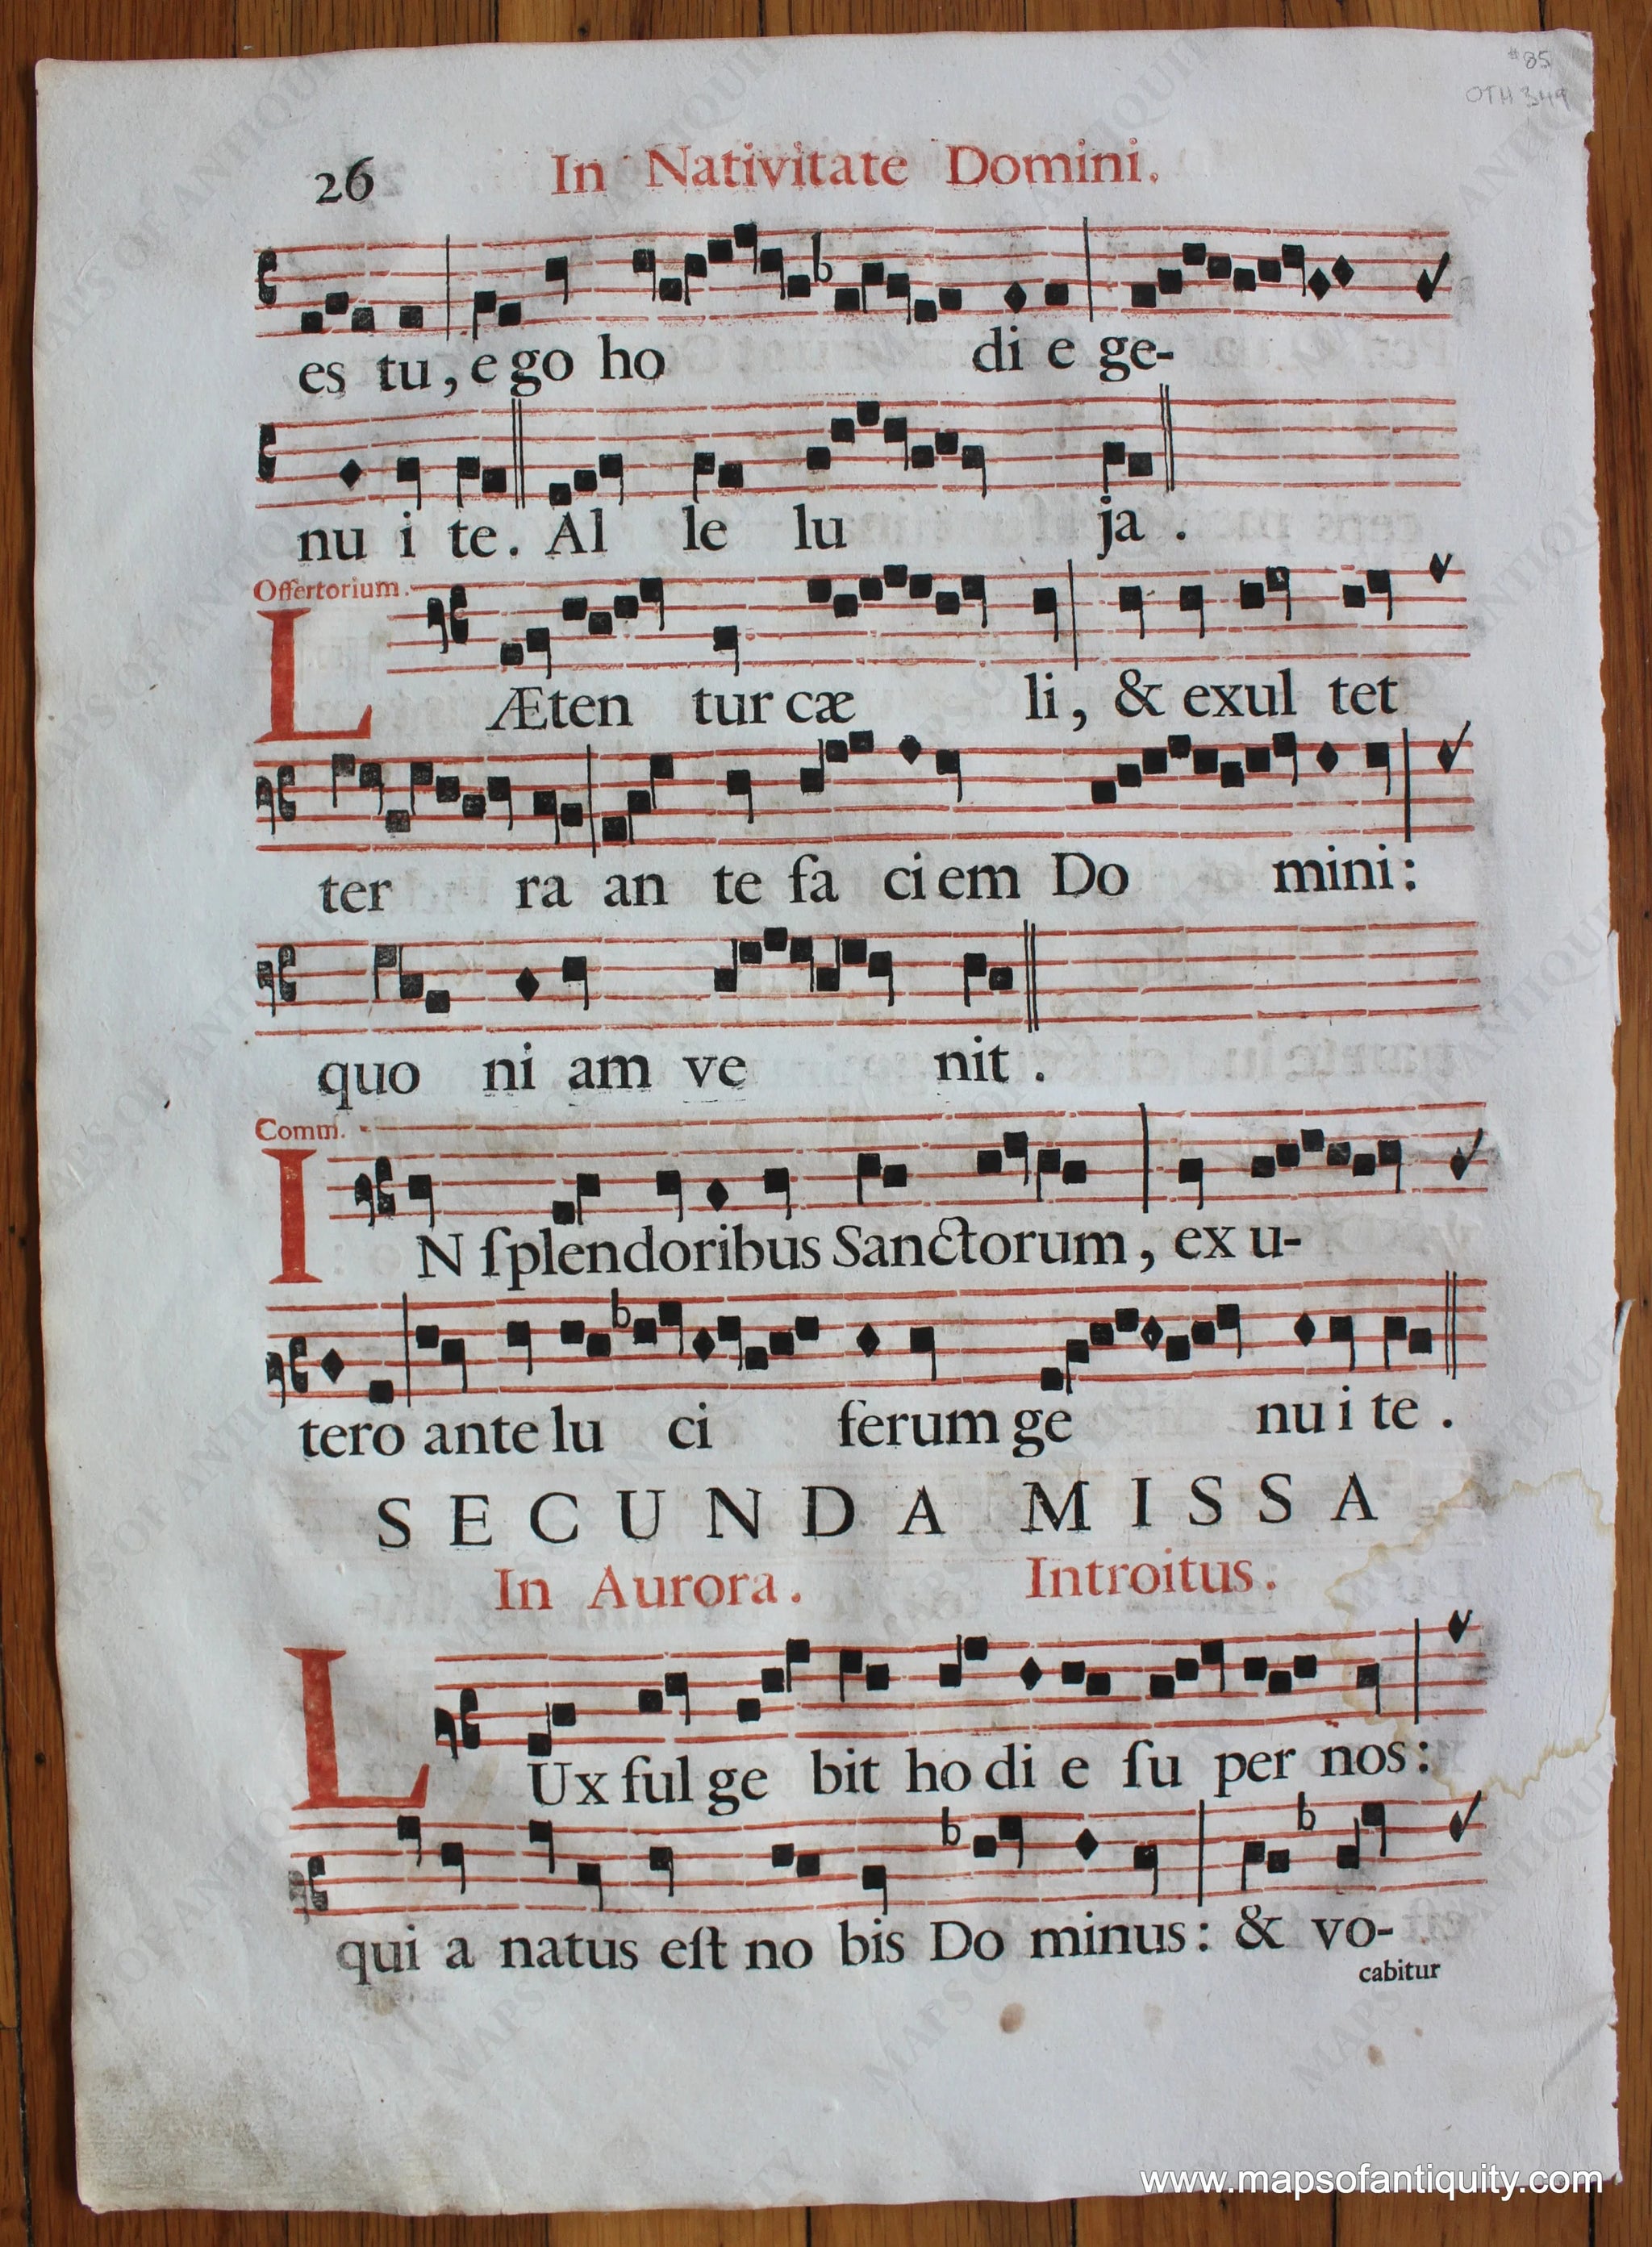 #85
OTH 349
26 In Nativitate Domini.
es tu, ego ho di e ge-
nu i te. Al le lu ja.
Offertorium.
LÆten tur cæ li, & exul tet
ter ra an te fa ciem Do mini:
quo ni am ve nit.
Comm.
IN ſplendoribus Sanctorum, ex u-
tero ante lu ci ferum ge nu i te.
SECUNDA MISSA
In Aurora. Introitus.
LUx ful ge bit ho di e ſu per nos:
qui a natus eſt no bis Do minus: & vo-
cabitur
www.mapsofantiquity.com